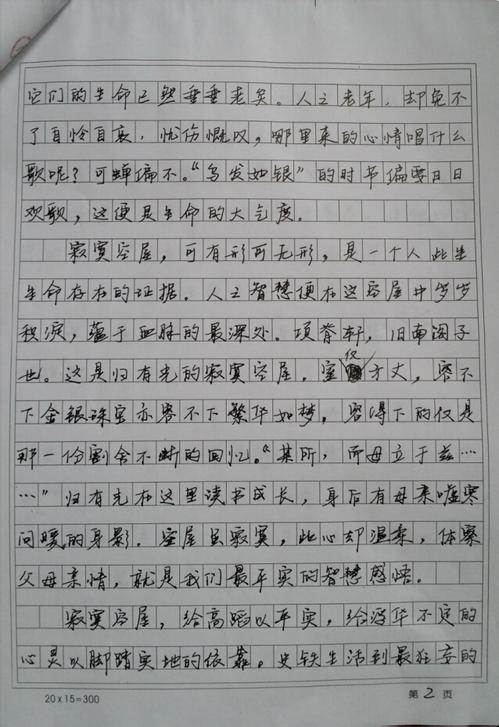 它们的生命已然垂垂老矣。人之老年，却免不
了自怜自哀，忧伤慨叹，哪里来的心情唱什么
歌呢？可蝉偏不。“乌发如银”的时节偏要日日
欢歌，这便是生命的大气度。
寂寞空屋，可有形可无形，是一个人此生
生命存在的证据。人之智慧便在这空屋中岁岁
积淀，蕴于血脉的最深处。项脊轩，旧南阁子
也。这是归有光的寂寞空屋。室仅方丈，容不
下金银珠宝亦容不下繁华如梦。容得下的仅是
那一份割舍不断的回忆。“某所，而母立于兹……
……”归有光在这里读书成长，身后有母亲嘘寒
问暖的身影。空屋虽寂寞，此心却温柔，体察
父母亲情，就是我们最平实的智慧感悟。
寂寞空屋，给高蹈以平实，给浮华不定的
心灵以脚踏实地的依靠。史铁生活到最狂妄的
20×15=300
第2页